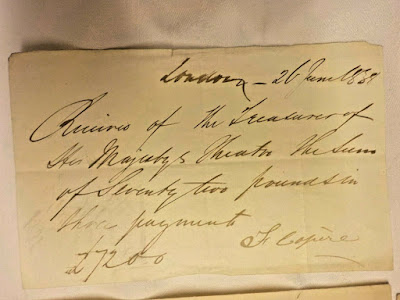 London - 26 June 1838
Received of the Treasurer of
Her Majesty's Theatre the Sum
of Seventy two pounds in
payment
£72.0.0